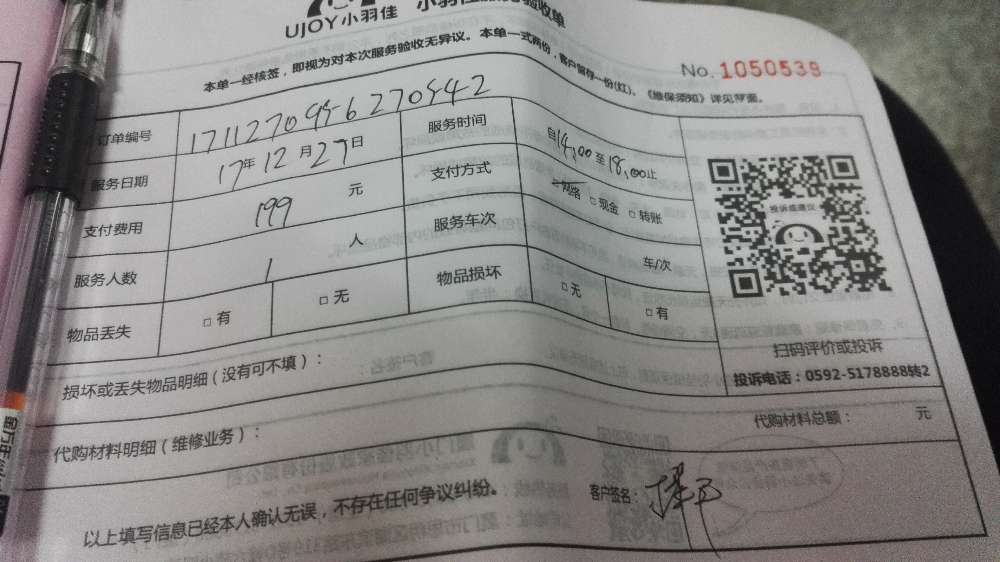 UJOY小羽佳
验收单
本单一经核签，即视为对本次服务验收无异议。本单一式两份，客户留存一份(红)。《维保须知》详见背面。
No.1050539
订单编号 1711270956270542
服务日期 17年12月27日 服务时间 自14:00至18:00止
支付费用 199 元 支付方式 网络 □现金 □转账
服务人数 1 人 服务车次 车/次
物品丢失 □有 □无 物品损坏 □无 □有
投诉或建议
扫码评价或投诉
投诉电话：0592-5178888转2
损坏或丢失物品明细（没有可不填）：
代购材料明细（维修业务）： 代购材料总额： 元
以上填写信息已经本人确认无误，不存在任何争议纠纷。 客户签名：